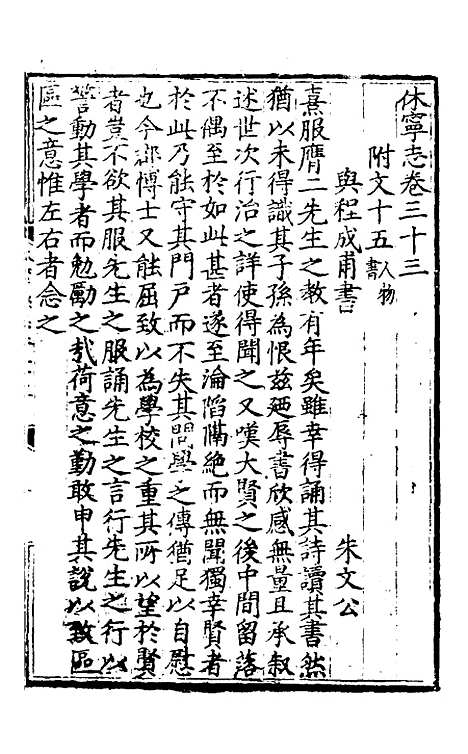 休寧志卷三十三
附文十五 人物書
與程成甫書 朱文公
熹服膺二先生之教有年矣雖幸得誦其詩讀其書然
猶以未得識其子孫為恨兹廼辱書欣感無量且承叙
述世次行治之詳使得聞之又嘆大賢之後中間留落
不偶至於如此甚者遂至淪陷隔絶而無聞獨幸賢者
於此乃能守其門戸而不失其問學之傳猶足以自慰
也今郡博士又能屈致以為學校之重其所以望於賢
者豈不欲其服先生之服誦先生之言行先生之行以
警動其學者而勉勵之哉荷意之勤敢申其說以致區
區之意惟左右者念之